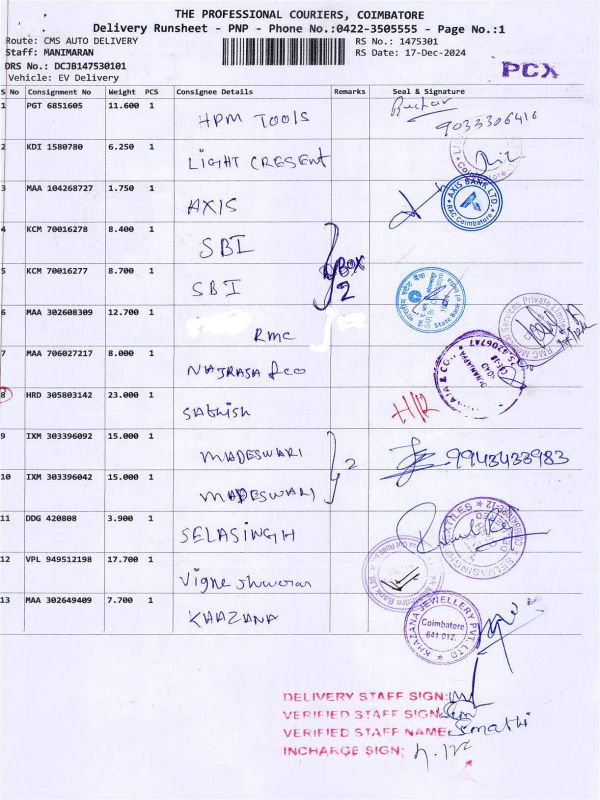 THE PROFESSIONAL COURIERS, COIMBATORE
Delivery Runsheet - PNP - Phone No.:0422-3505555 - Page No.:1
Route: CMS AUTO DELIVERY RS No.: 1475301
Staff: MANIMARAN RS Date: 17-Dec-2024
DRS No.: DCJB147530101
Vehicle: EV Delivery
PCX
S No Consignment No Weight PCS Consignee Details Remarks Seal & Signature
1 PGT 6851605 11.600 1 HPM TOOLS 9033306416
2 KDI 1580780 6.250 1 LIGHT CRESENT
3 MAA 104268727 1.750 1 AXIS AXIS BANK LTD. RAC Coimbatore
4 KCM 70016278 8.400 1 SBI BOX
5 KCM 70016277 8.700 1 SBI 2
6 MAA 302608309 12.700 1 RMC
7 MAA 706027217 8.000 1
8 HRD 305803142 23.000 1 Sathish H/R
9 IXM 303396092 15.000 1 MADESWARI 2 9943433983
10 IXM 303396042 15.000 1 MADESWARI
11 DDG 420808 3.900 1 SELASINGH
12 VPL 949512198 17.700 1 Vigneshwaran
13 MAA 302649409 7.700 1 KHAZANA KHAZANA JEWELLERY PVT. LTD Coimbatore 641 012.
DELIVERY STAFF SIGN:
VERIFIED STAFF SIGN:
VERIFIED STAFF NAME: Sumathi
INCHARGE SIGN: